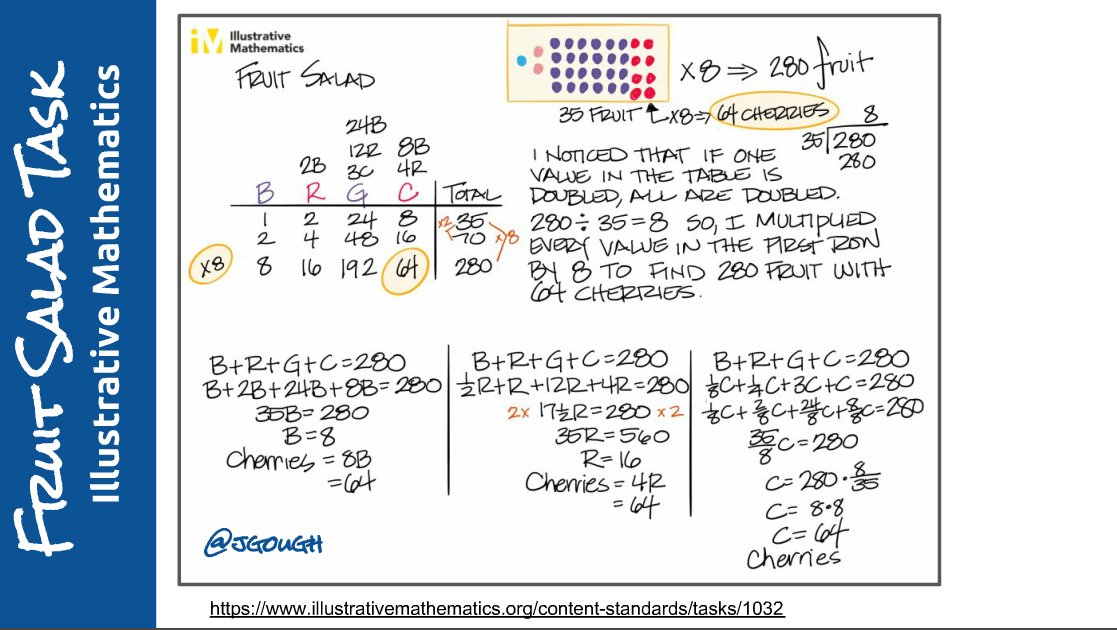 FRUIT SALAD TASK
Illustrative Mathematics
iM Illustrative
Mathematics
FRUIT SALAD
×8 ⇒ 280 fruit
35 FRUIT ×8 ⇒ 64 CHERRIES
8
35 280
280
24B
12R 8B
2B 3C 4R
B R G C TOTAL
1 2 24 8 ×2 35
2 4 48 16 70 ×8
×8 8 16 192 64 280
I NOTICED THAT IF ONE
VALUE IN THE TABLE IS
DOUBLED, ALL ARE DOUBLED.
280 ÷ 35 = 8 SO, I MULTIPLIED
EVERY VALUE IN THE FIRST ROW
BY 8 TO FIND 280 FRUIT WITH
64 CHERRIES.
B+R+G+C=280
B+2B+24B+8B=280
35B=280
B=8
Cherries = 8B
=64
B+R+G+C=280
1/2R+R+12R+4R=280
2× 17 1/2R=280 ×2
35R=560
R=16
Cherries=4R
= 64
B+R+G+C=280
1/8C+1/4C+3C+C=280
1/8C+2/8C+24/8C+8/8C=280
35/8 C=280
C=280·8/35
C= 8·8
C=64
Cherries
@JGOUGH
https://www.illustrativemathematics.org/content-standards/tasks/1032